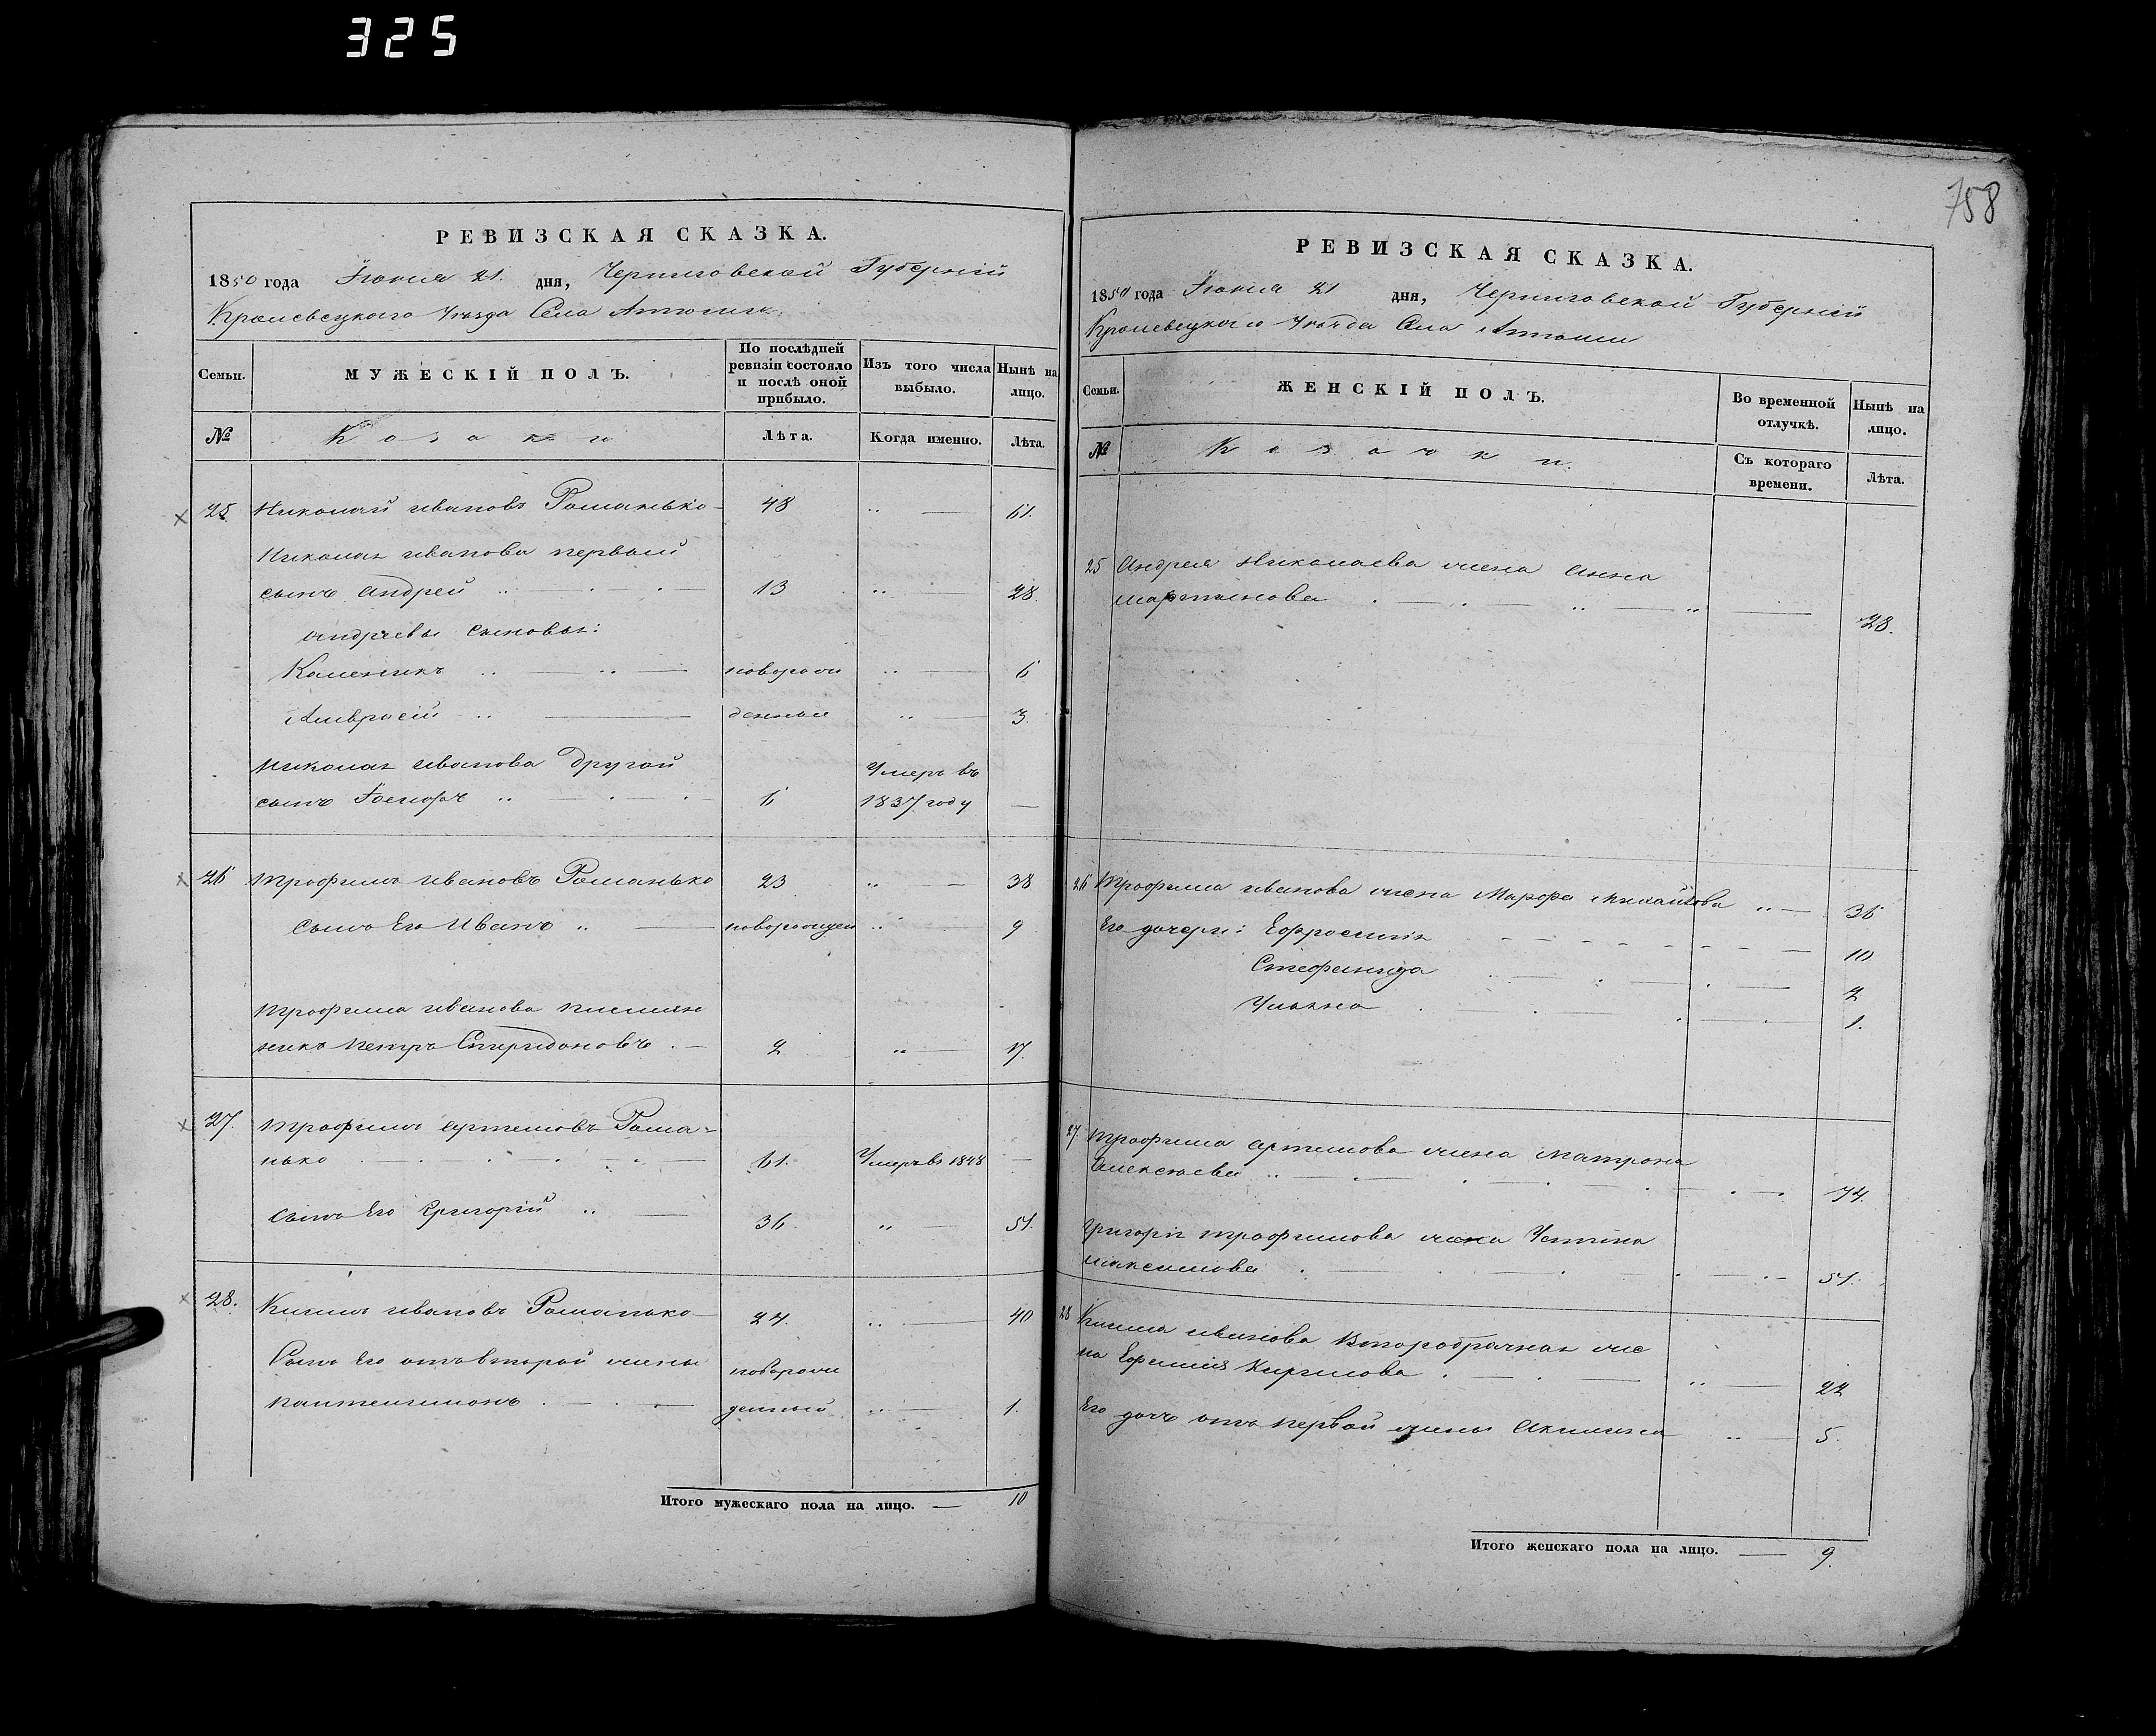 325
758
РЕВИЗСКАЯ СКАЗКА.
1850 года Іюня 21. дня, Черниговской Губерніи
Кролевецкаго Уѣзда Села
СЕМЬИ.
МУЖЕСКІЙ ПОЛЪ.
По послѣдней ревизіи состояло и послѣ оной прибыло.
Изъ того числа выбыло.
Нынѣ на лицо.
№
Козаки
Лѣта.
Когда именно.
Лѣта.
25 Николай Ивановъ Романько 48 61.
Николая Иванова первый
сынъ Андрей 13 28.
Андреевы сыновья:
Калиникъ новорож 6
Амвросій денные 3.
Николая Иванова другой Умеръ въ
сынъ Іосифъ 6 1837 году
26 Трофимъ Ивановъ Романько 23 38
Сынъ Его Иванъ новорожден 9
Трофима Иванова племян
никъ Петръ Спиридоновъ 2 17.
27. Трофимъ Артемовъ Рома-
нько 61. Умеръ въ 1848
Сынъ Его Григорій 36 51.
28. Климъ Ивановъ Романько 24. 40
Сынъ Его отъ второй жены новорож
Пантелимонъ денный 1.
Итого мужескаго пола на лицо. 10
РЕВИЗСКАЯ СКАЗКА.
1850 года Іюня 21 дня, Черниговской Губерніи
Кролевецкаго Уѣзда Села
Семьи.
ЖЕНСКІЙ ПОЛЪ.
Во временной отлучкѣ.
Нынѣ на лицо.
№
Козачки.
Съ котораго времени.
Лѣта.
25 Андрея Николаева жена Анна
Мартинова 28.
26 Трофима Иванова жена Марфа Михайлова 36
Его дочери: Ефросинія 10
Стефанида 2
Ульяна 1.
27. Трофима Артемова жена Матрона
Алексѣева 74.
Григорія Трофимова жена Устина
Максимова 51.
28 Клима Иванова второбрачная же
на Ефимія Кирилова 22
Его дочь отъ первой жены Акилина 5.
Итого женскаго пола на лицо. 9.